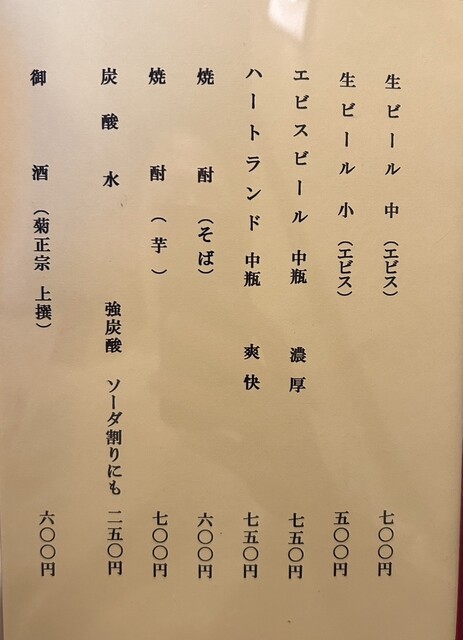 生ビール 中 （エビス） 七〇〇円
生ビール 小 （エビス） 五〇〇円
エビスビール 中瓶 濃厚 七五〇円
ハートランド 中瓶 爽快 七五〇円
焼酎 （そば） 六〇〇円
焼酎 （芋） 七〇〇円
炭酸水 強炭酸 ソーダ割りにも 二五〇円
御酒 （菊正宗 上撰） 六〇〇円